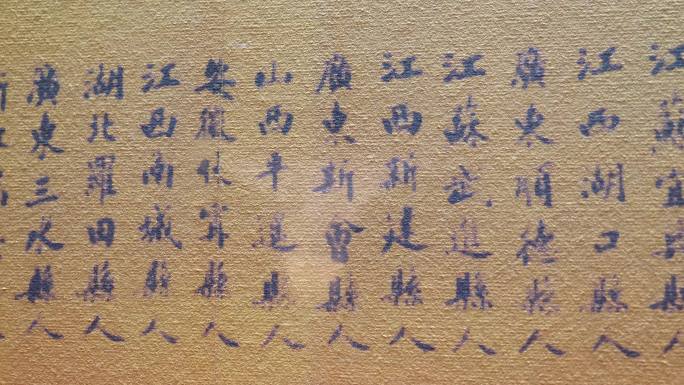 江蘇宜興縣人
江西湖口縣人
廣東順德縣人
江蘇武進縣人
江西新建縣人
廣東新會縣人
山西平遥縣人
安徽休寧縣人
江西南城縣人
湖北羅田縣人
廣東三水縣人